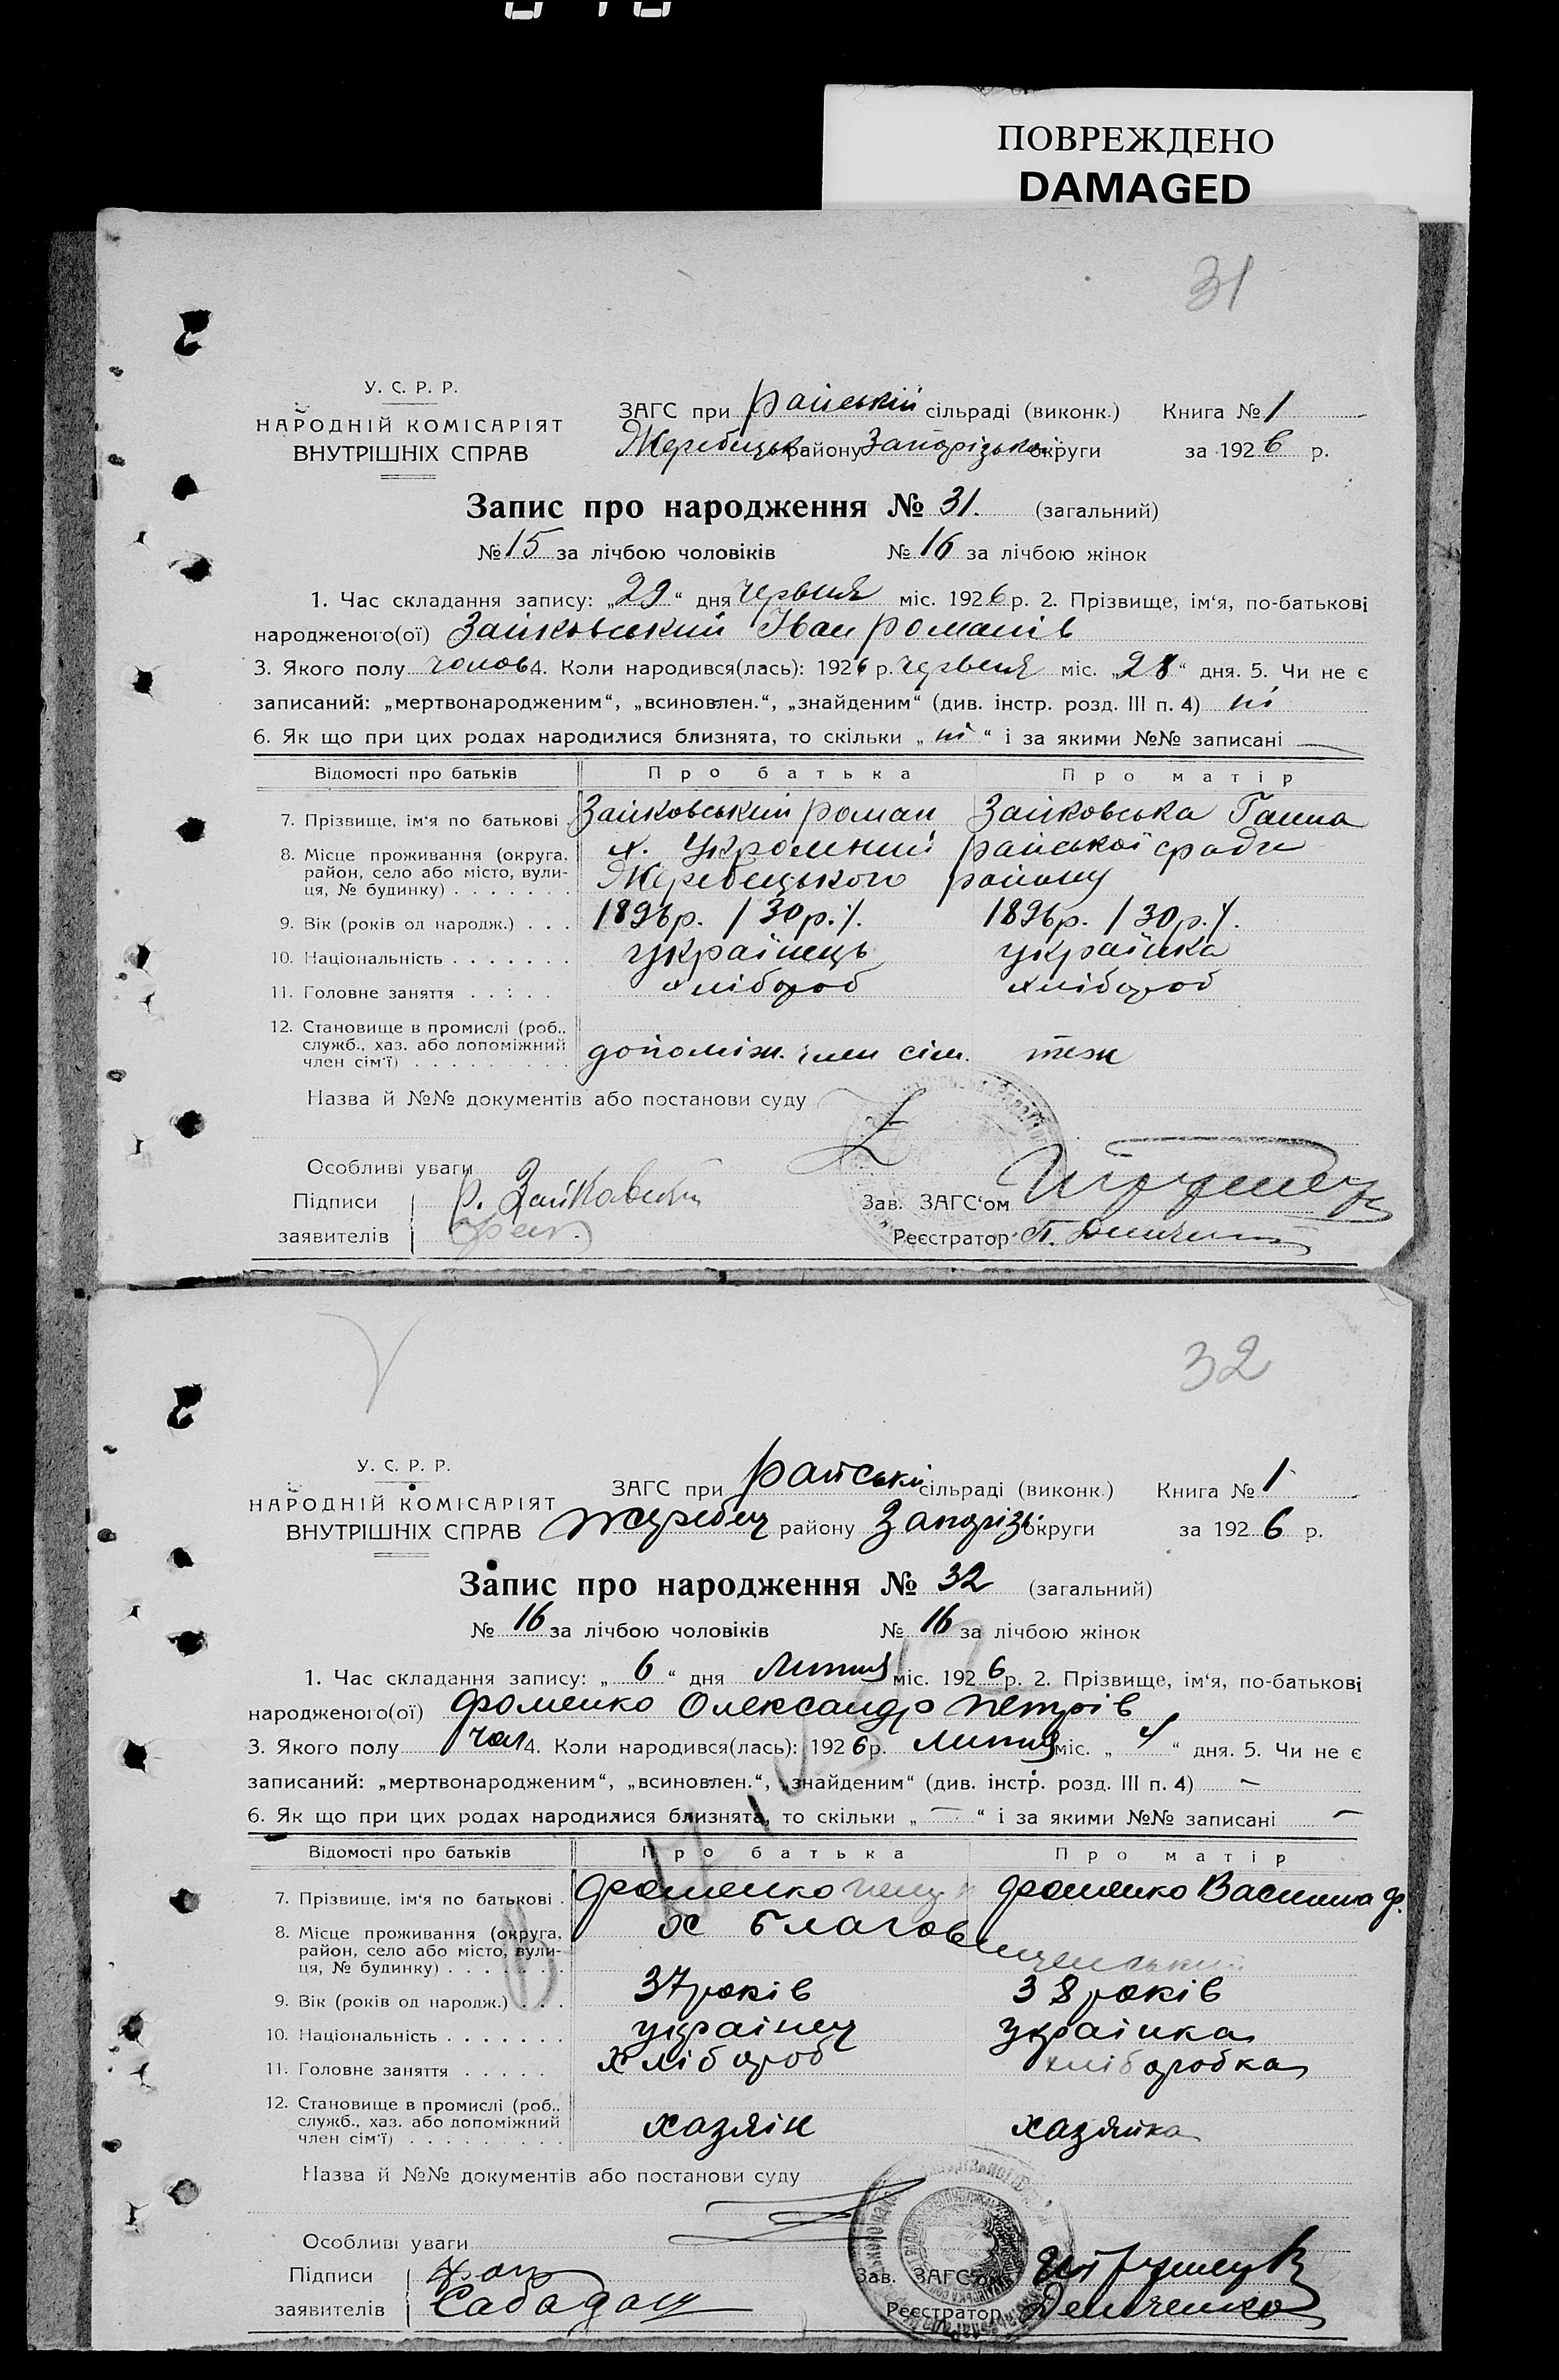 ПОВРЕЖДЕНО
DAMAGED
31
У. С. Р. Р.
НАРОДНІЙ КОМІСАРІЯТ
ВНУТРІШНІХ СПРАВ
ЗАГС при Райській сільраді (виконк.) Книга № 1
Жеребецьк району Запорізької округи за 1926 р.
Запис про народження № 31. (загальний)
№ 15 за лічбою чоловіків № 16 за лічбою жінок
1. Час складання запису: „29“ дня червня міс. 1926 р. 2. Прізвище, ім‘я, по-батькові
народженого(ої) Зайковський Іван Романів
3. Якого полу чолов 4. Коли народився(лась): 1926 р. червня міс. „28“ дня. 5. Чи не є
записаний: „мертвонародженим“, „всиновлен.“, „знайденим“ (див. інстр. розд. III п. 4) ні
6. Як що при цих родах народилися близнята, то скільки „ні“ і за якими №№ записані —
Відомості про батьків Про батька Про матір
7. Прізвище, ім‘я по батькові Зайковський Роман Зайковська Ганна
8. Місце проживання (округа, х. Укромний Райської сради
район, село або місто, вули- Жеребецького району
ця, № будинку) . . . . . . .
9. Вік (років од народж.) . . . 1896р. /30р./. 1896р. /30р./.
10. Національність . . . . . . . українець українка
11. Головне заняття . . : . . хлібороб хлібороб
12. Становище в промислі (роб.,
служб., хаз. або допоміжний допоміж. член сім. теж
член сім‘ї) . . . . . . . . .
Назва й №№ документів або постанови суду
Особливі уваги
Підписи Р. Зайковський
Зав. ЗАГС‘ом
заявителів
Реєстратор
32
У. С. Р. Р.
НАРОДНІЙ КОМІСАРІЯТ
ВНУТРІШНІХ СПРАВ
ЗАГС при Райській сільраді (виконк.) Книга № 1
Жеребец району Запоріз. округи за 1926 р.
Запис про народження № 32 (загальний)
№ 16 за лічбою чоловіків № 16 за лічбою жінок
1. Час складання запису: „6“ дня Липня міс. 1926 р. 2. Прізвище, ім‘я, по-батькові
народженого(ої) Фоменко Олександр Петрів
3. Якого полу чол 4. Коли народився(лась): 1926 р. Липня міс. „4“ дня. 5. Чи не є
записаний: „мертвонародженим“, „всиновлен.“, „знайденим“ (див. інстр. розд. III п. 4) —
6. Як що при цих родах народилися близнята, то скільки „—“ і за якими №№ записані —
Відомості про батьків Про батька Про матір
7. Прізвище, ім‘я по батькові . Фоменко Фоменко Василина Ф.
8. Місце проживання (округа, х Благовищенський
район, село або місто, вули-
ця, № будинку) . . . . . . .
9. Вік (років од народж.) . . . 37 років 38 років
10. Національність . . . . . . . україnец українка
11. Головне заняття . . . . . хлібороб хліборобка
12. Становище в промислі (роб.,
служб., хаз. або допоміжний хазяін хазяйка
член сім‘ї) . . . . . . . . .
Назва й №№ документів або постанови суду
Особливі уваги
Підписи
Зав. ЗАГС‘ом
заявителів
Реєстратор Демченко